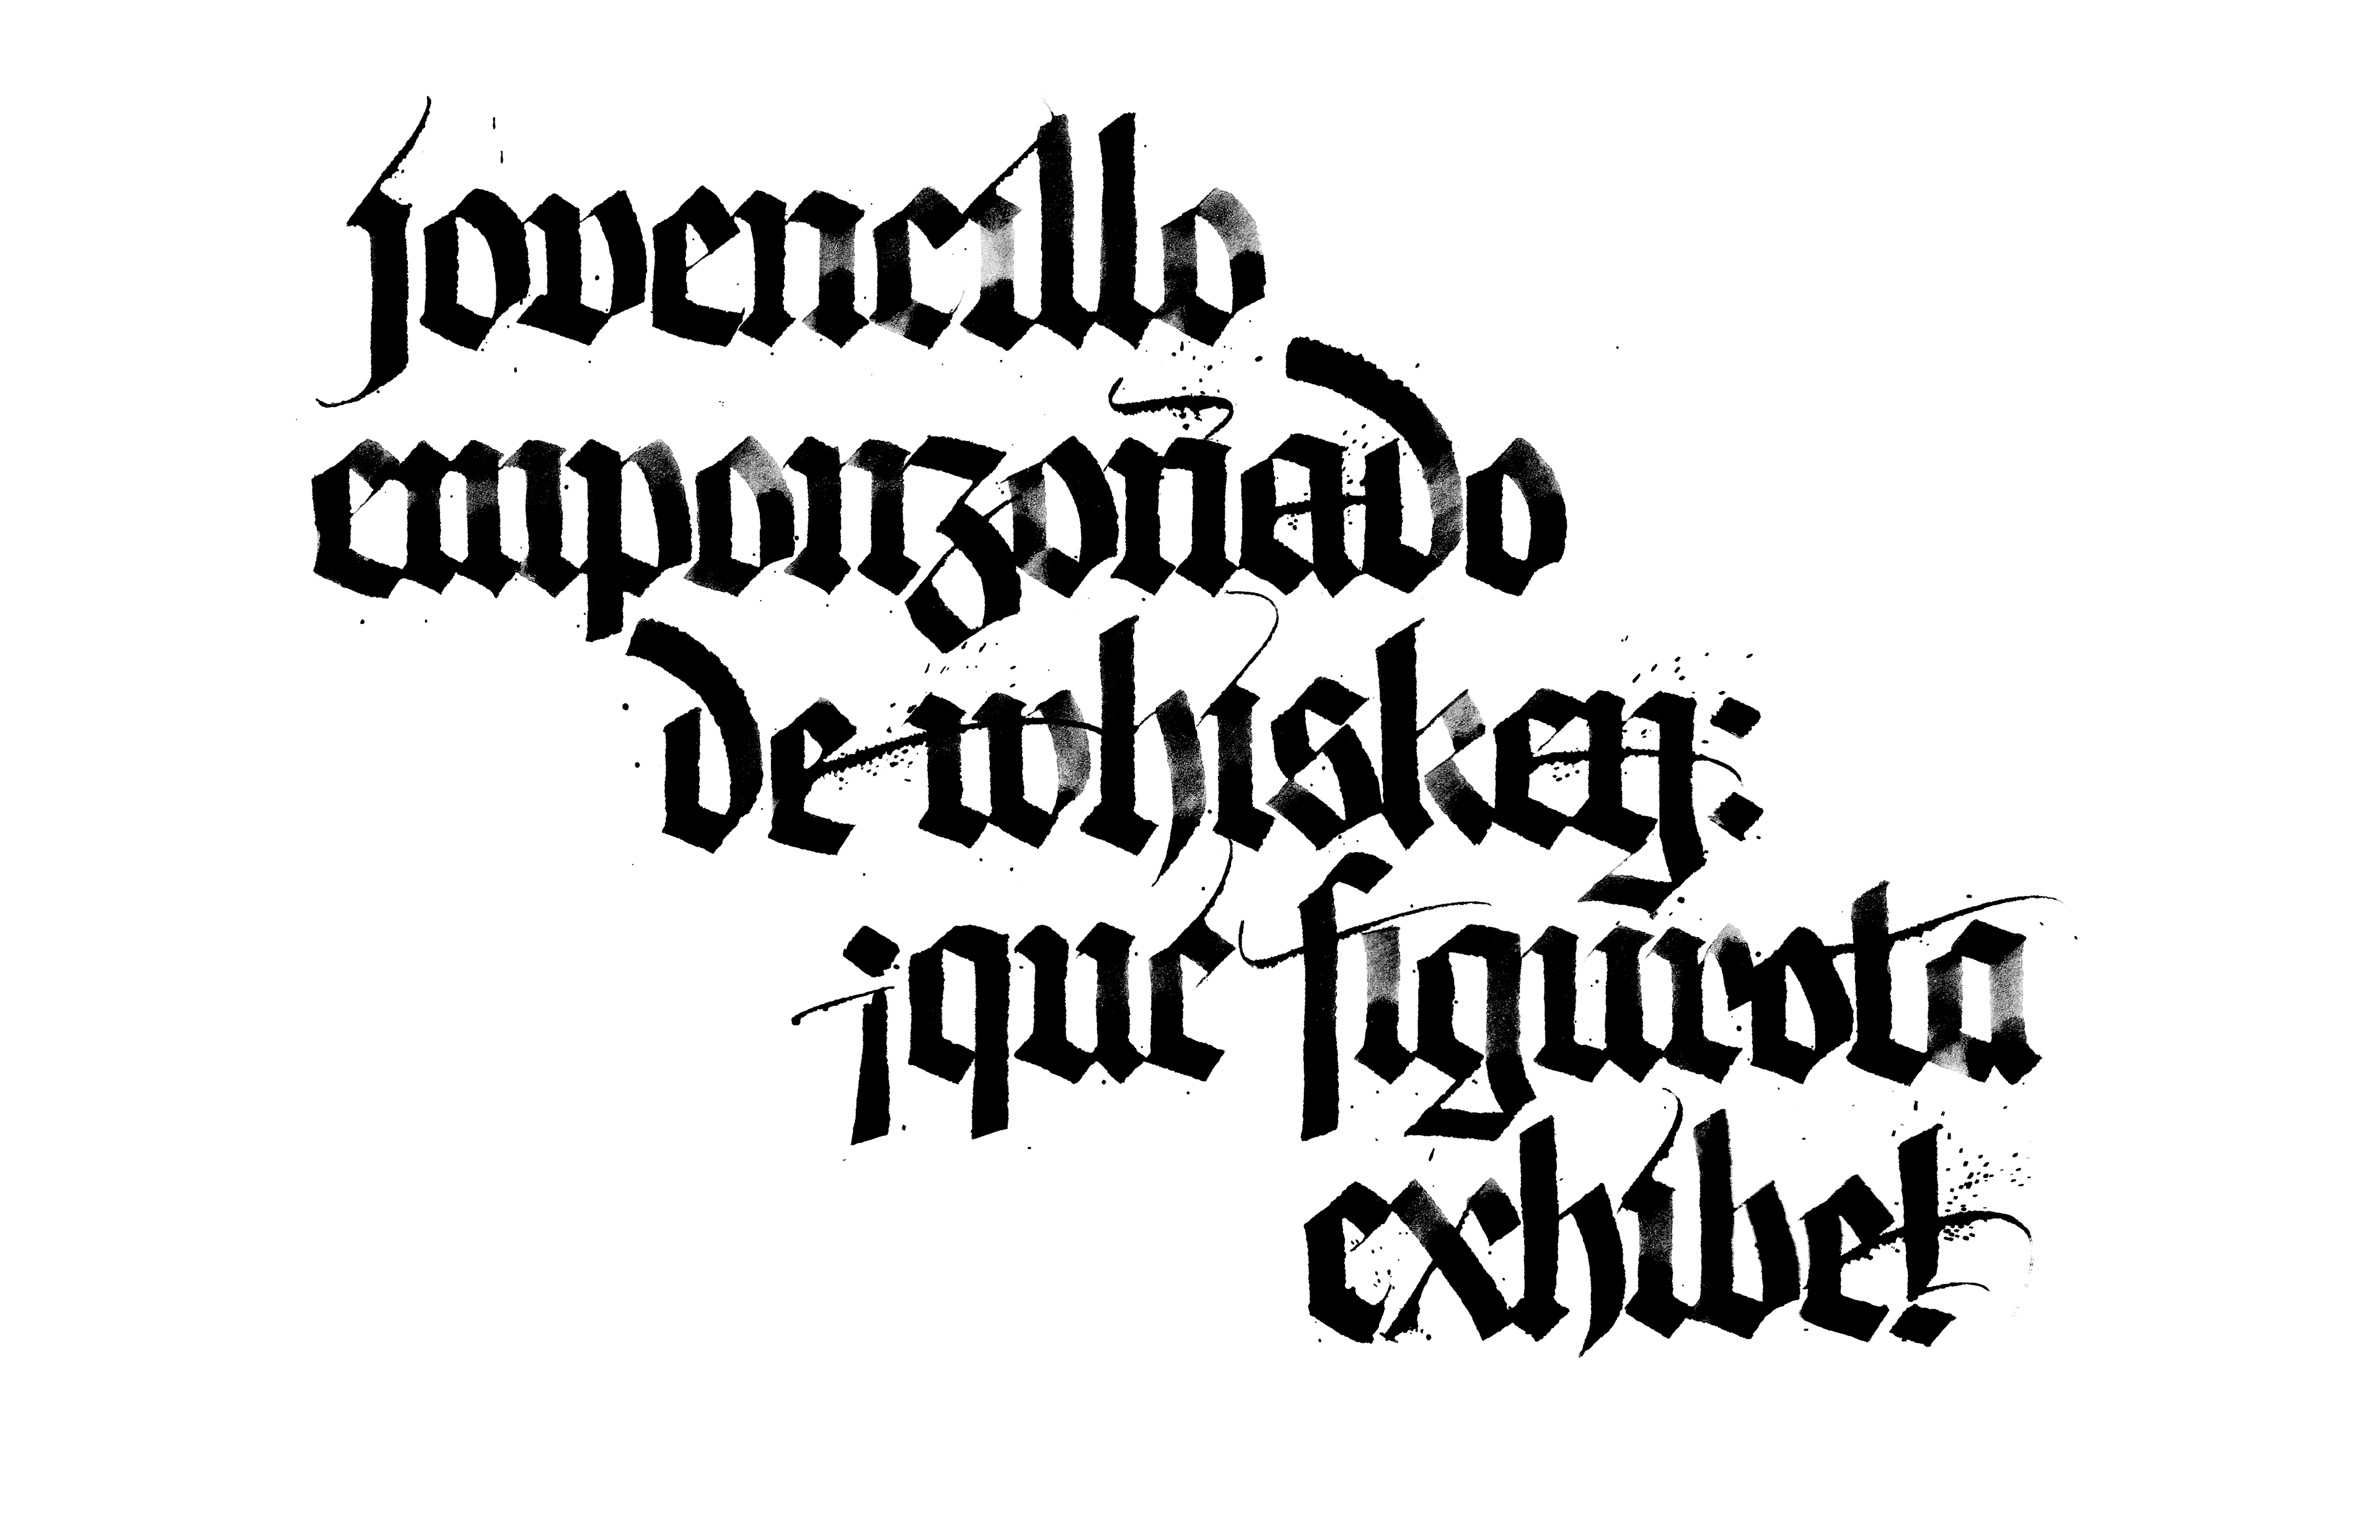 jovencillo
emponzoñado
de whiskey:
¡qué figurota
exhibe!